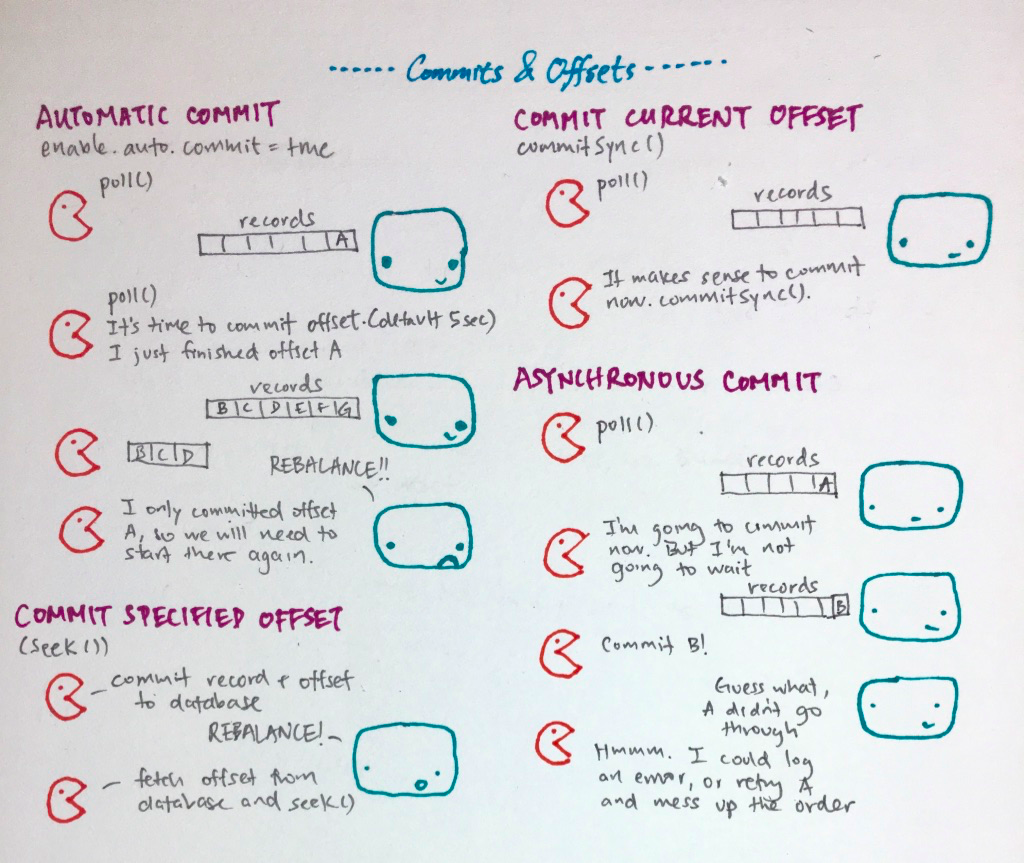 Commits & Offsets
AUTOMATIC COMMIT
enable.auto.commit = true
poll()
records
A
poll()
It's time to commit offset. (default 5sec)
I just finished offset A
records
B C D E F G
B C D
REBALANCE!!
I only committed offset
A, so we will need to
start there again.
COMMIT SPECIFIED OFFSET
(seek())
commit record + offset
to database
REBALANCE!
fetch offset from
database and seek()
COMMIT CURRENT OFFSET
commitSync()
poll()
records
It makes sense to commit
now. commitSync().
ASYNCHRONOUS COMMIT
poll()
records
A
I'm going to commit
now. But I'm not
going to wait
records
B
Commit B!
Guess what,
A didn't go
through
Hmmm. I could log
an error, or retry A
and mess up the order